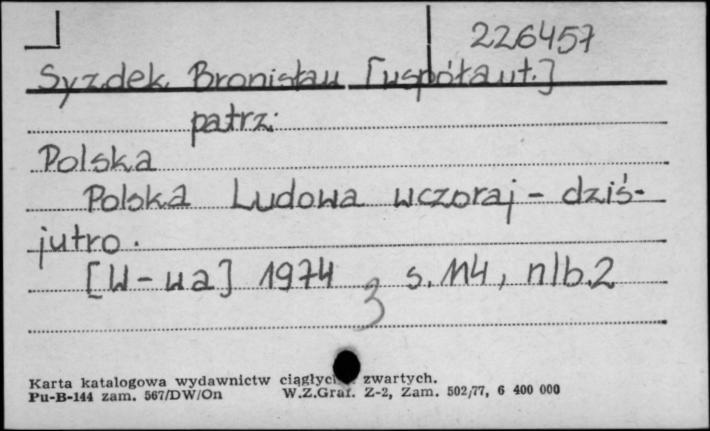 226457
Syzdek Bronisław [współaut.]
patrz:
Polska
Polska Ludowa wczoraj - dziś -
jutro.
[W-wa] 1974 s. 114, nlb. 2
3
Karta katalogowa wydawnictw ciągłych zwartych.
Pu-B-144 zam. 567/DW/On W.Z.Graf. Z-2, Zam. 502/77, 6 400 000